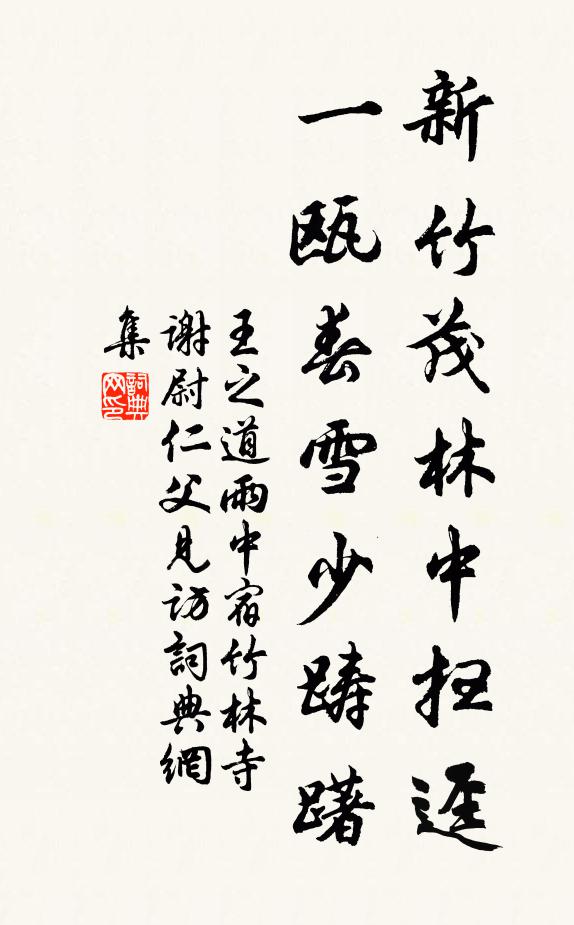 新竹茂林中扫逕
一瓯春雪少踌躇
王之道雨中宿竹林寺
謝尉仁父見訪詞典網
集
詞典网印